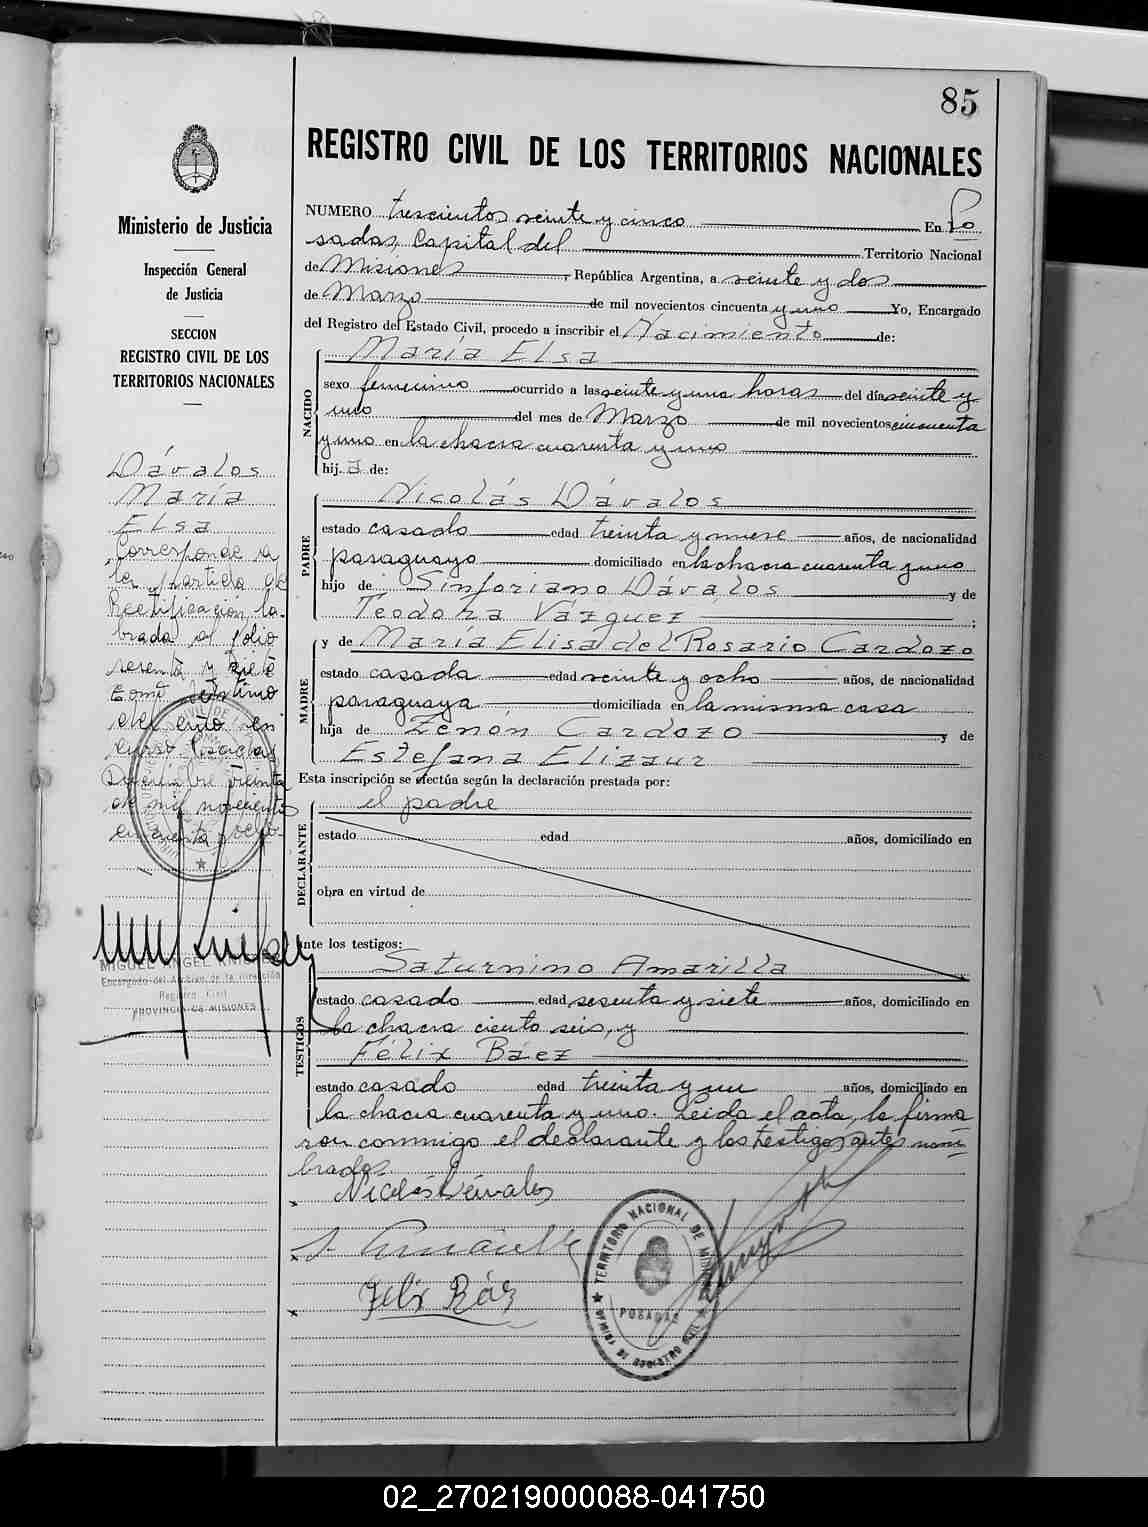 85
REGISTRO CIVIL DE LOS TERRITORIOS NACIONALES
Ministerio de Justicia
Inspección General
de Justicia
SECCION
REGISTRO CIVIL DE LOS
TERRITORIOS NACIONALES
Dávalos
María
Elsa
Corresponde a
la partida de
Rectificación la-
brada al folio
sesenta y siete
tomo séptimo
del año en
curso. Posadas
Diciembre treinta
de mil novecientos
cincuenta y ocho-
MIGUEL ANGEL
Encargado del Archivo de la Dirección
Registro Civil
PROVINCIA DE MISIONES
NUMERO trescientos veinte y cinco En Po
sadas, Capital del Territorio Nacional
de Misiones, República Argentina, a veinte y dos
de Marzo de mil novecientos cincuenta y uno Yo, Encargado
del Registro del Estado Civil, procedo a inscribir el Nacimiento de:
NACIDO
María Elsa
sexo femenino ocurrido a las veinte y una horas del día veinte y
uno del mes de Marzo de mil novecientos cincuenta
y uno en la chacra cuarenta y uno
hija de:
PADRE
Nicolás Dávalos
estado casado edad treinta y nueve años, de nacionalidad
paraguayo domiciliado en la chacra cuarenta y uno
hijo de Sinforiano Dávalos y de
Teodora Vázquez;
MADRE
y de María Elisa del Rosario Cardozo
estado casada edad veinte y ocho años, de nacionalidad
paraguaya domiciliada en la misma casa
hija de Zenón Cardozo y de
Estefana Elizaur
Esta inscripción se efectúa según la declaración prestada por:
DECLARANTE
el padre
estado edad años, domiciliado en
obra en virtud de
ante los testigos:
TESTIGOS
Saturnino Amarilla
estado casado edad sesenta y siete años, domiciliado en
la chacra ciento seis, y
Félix Báez
estado casado edad treinta y un años, domiciliado en
la chacra cuarenta y uno. Leida el acta, la firma
ron conmigo el declarante y los testigos antes nom-
brados.
Nicolás Dávalos
S. Amarilla
Felix Báez
TERRITORIO NACIONAL DE MISIONES
POSADAS
OFICINA DE REGISTRO CIVIL
02_270219000088-041750